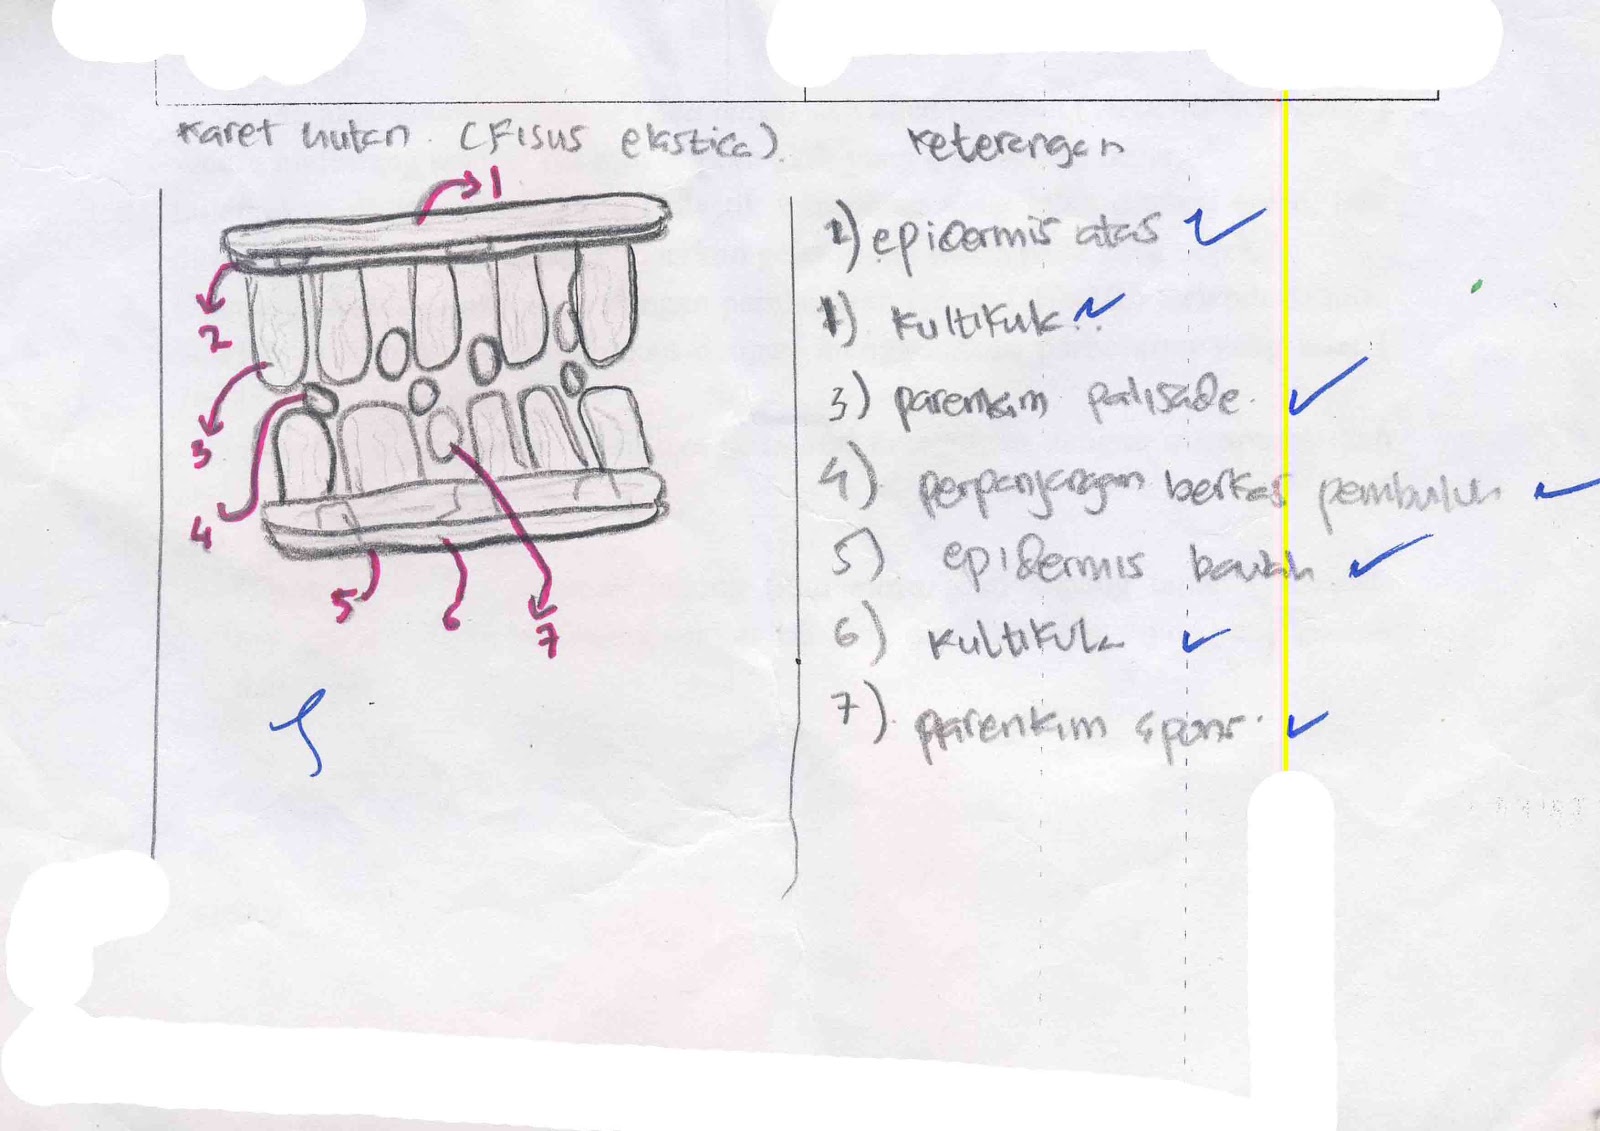 Karet hutan. (Fisus elastica).
1
2
3
4
5
6
7
Keterangan
2) epidermis atas
1) kultikula
3) parenkim palisade.
4) perpanjangan berkas pembuluh
5) epidermis bawah
6) kultikula
7) parenkim spons.